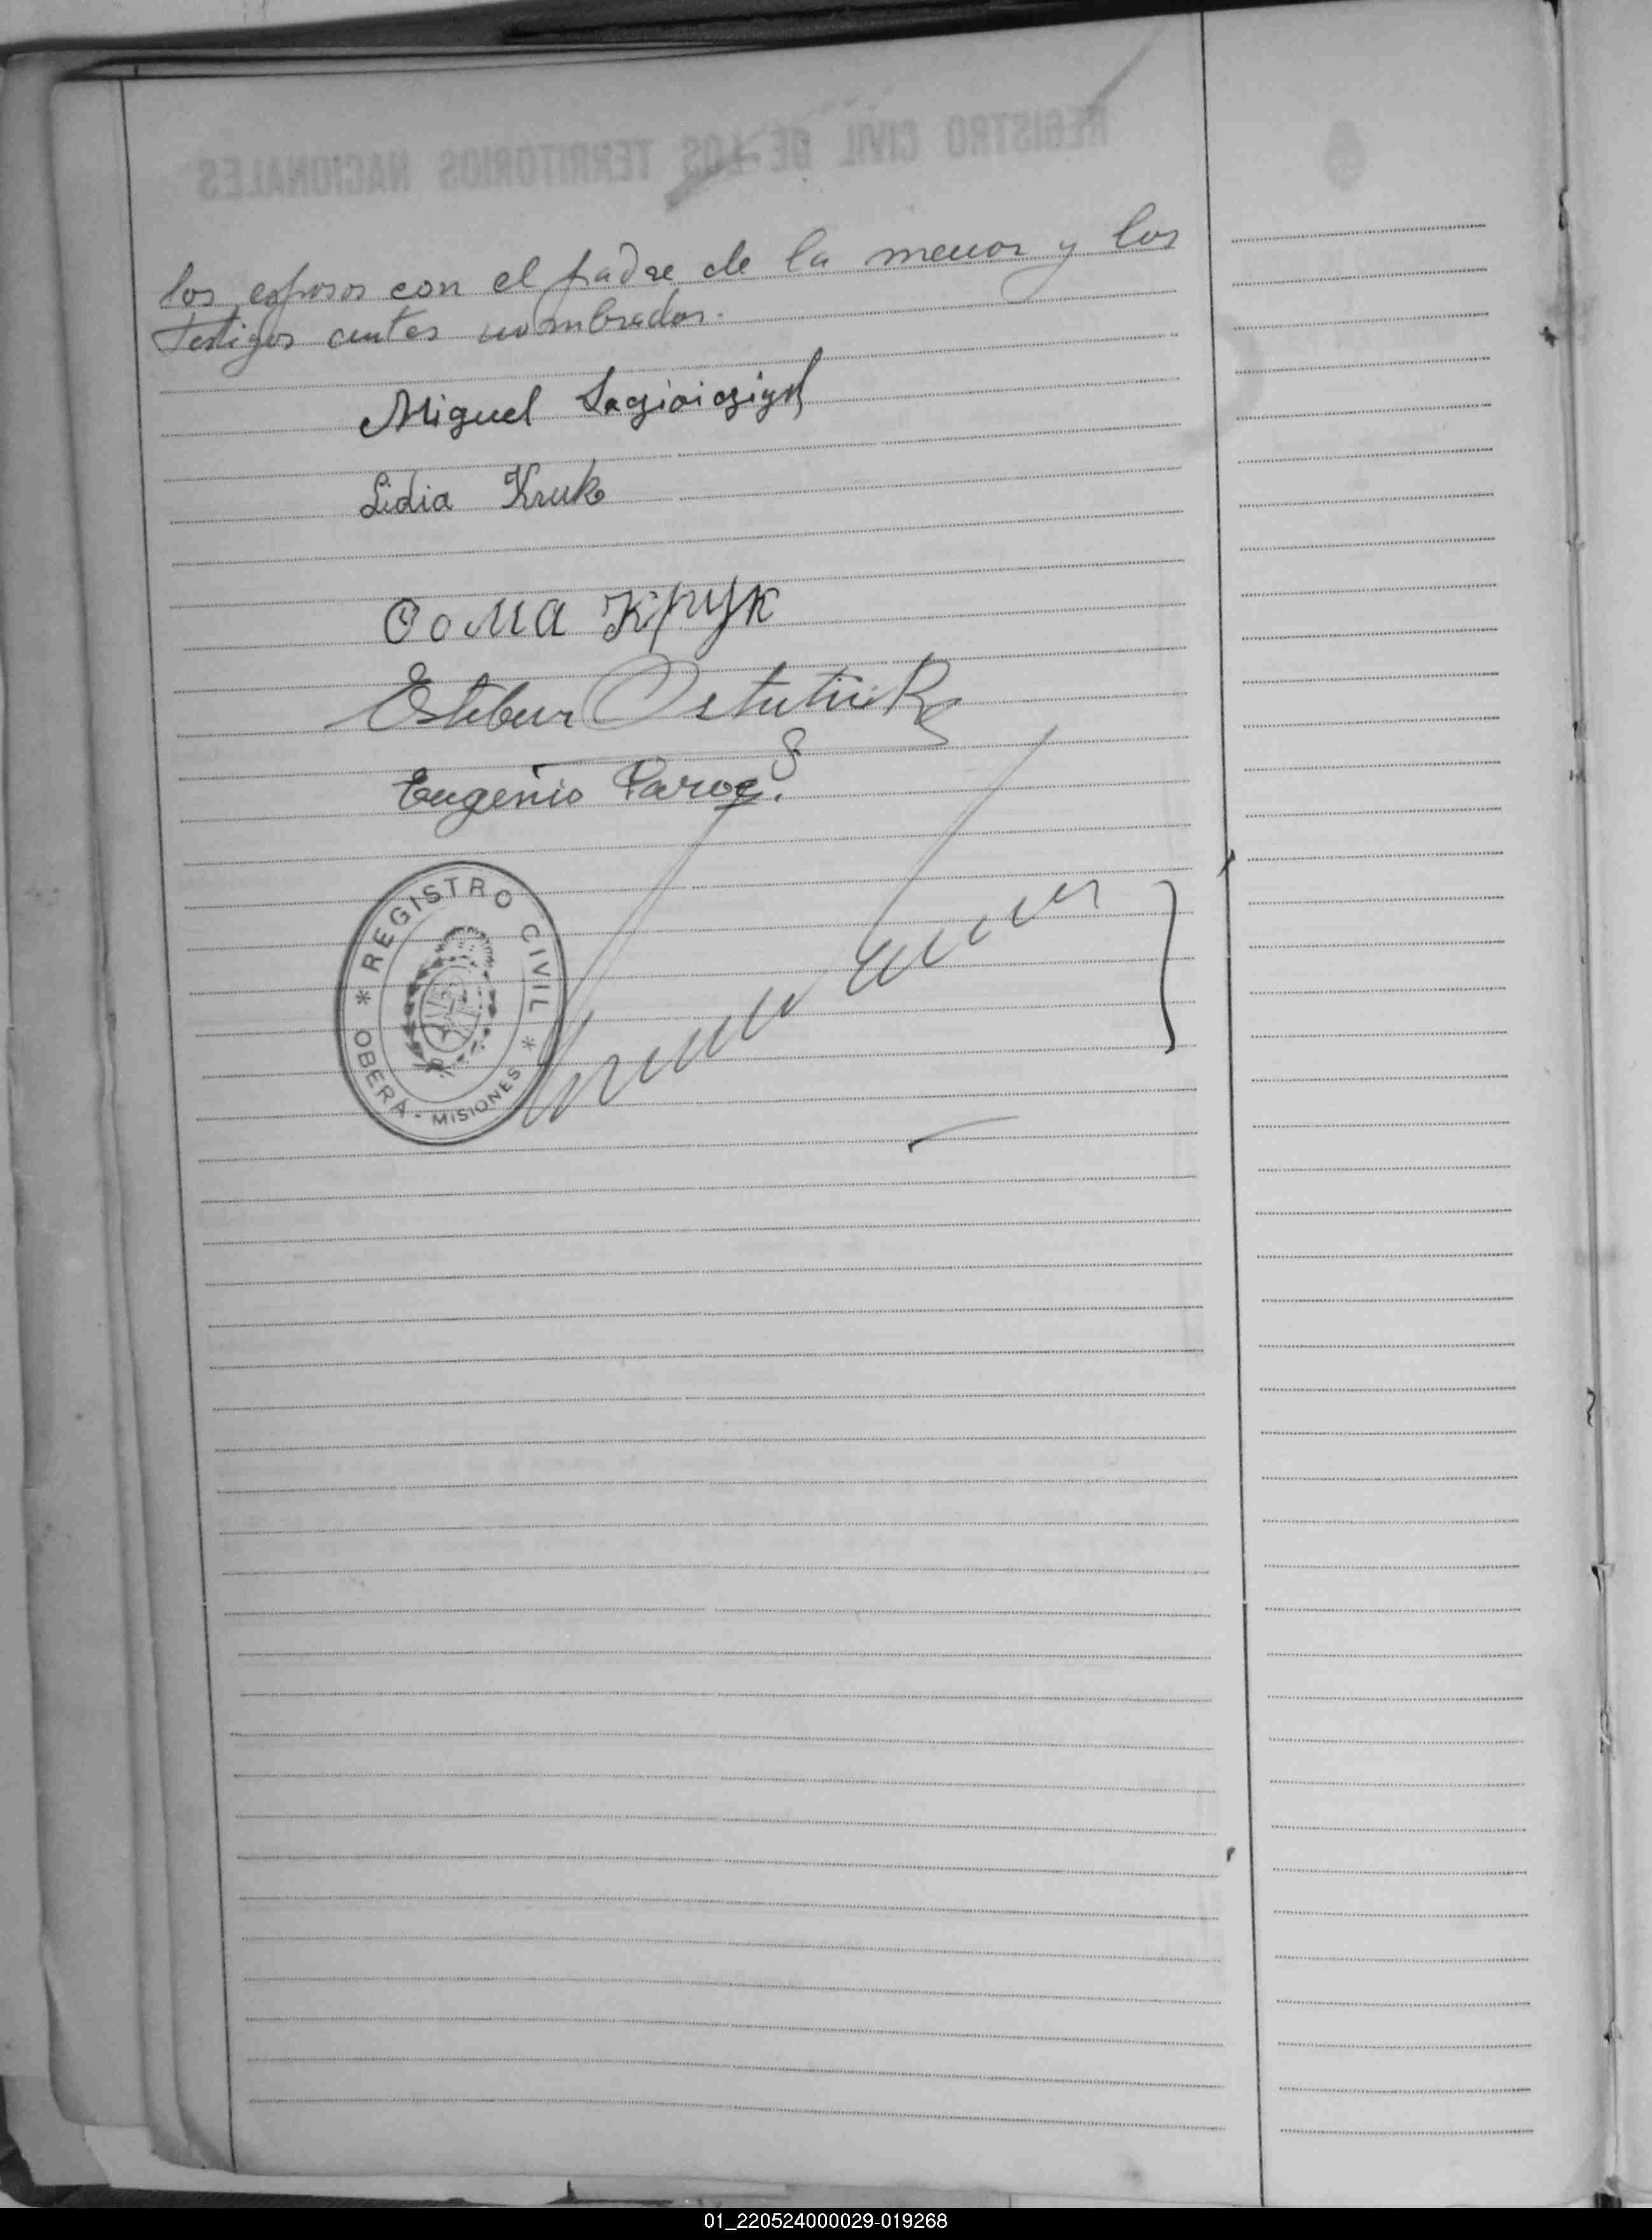 REGISTRO CIVIL DE LOS TERRITORIOS NACIONALES
los esposos con el padre de la menor y los
testigos antes nombrados.
Miguel
Lidia Kruk
Ѳома Крук
Esteban
Eugenio
REGISTRO CIVIL
OBERÁ - MISIONES
01_220524000029-019268